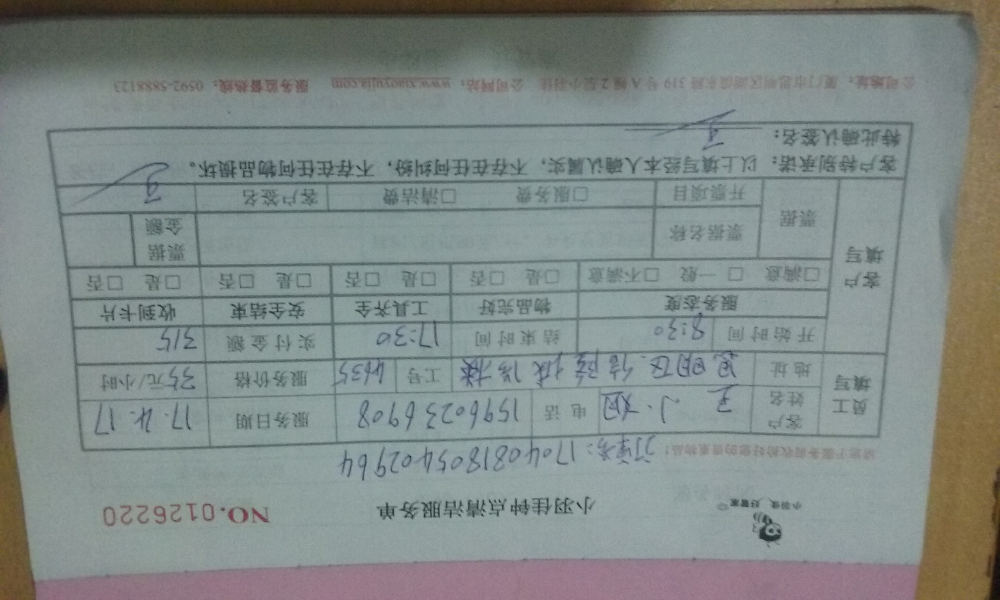 小羽佳 好管家
小羽佳钟点清洁服务单
NO.0126220
订单号：1704081805402964
请您于服务前收拾好您的贵重物品！
员工填写
客户姓名 王小姐 电话 15960236908 服务日期 17.4.17
地址 思明区 工号 4635 服务价格 35元/小时
开始时间 8:30 结束时间 17:30 实付金额 315
客户填写
服务态度 物品完好 工具齐全 安全结束 收到卡片
□满意 □一般 □不满意 □是 □否 □是 □否 □是 □否 □是 □否
票据 票据名称 票据金额
开票项目 □服务费 □清洁费 客户签名 王
客户特别承诺：以上填写经本人确认属实，不存在任何纠纷，不存在任何物品损坏。
特此确认签名： 王
公司地址：厦门市思明区湖滨东路319号A幢2层小羽佳 公司网站：www.xiaoyujia.com 服务监督热线：0592-5888123